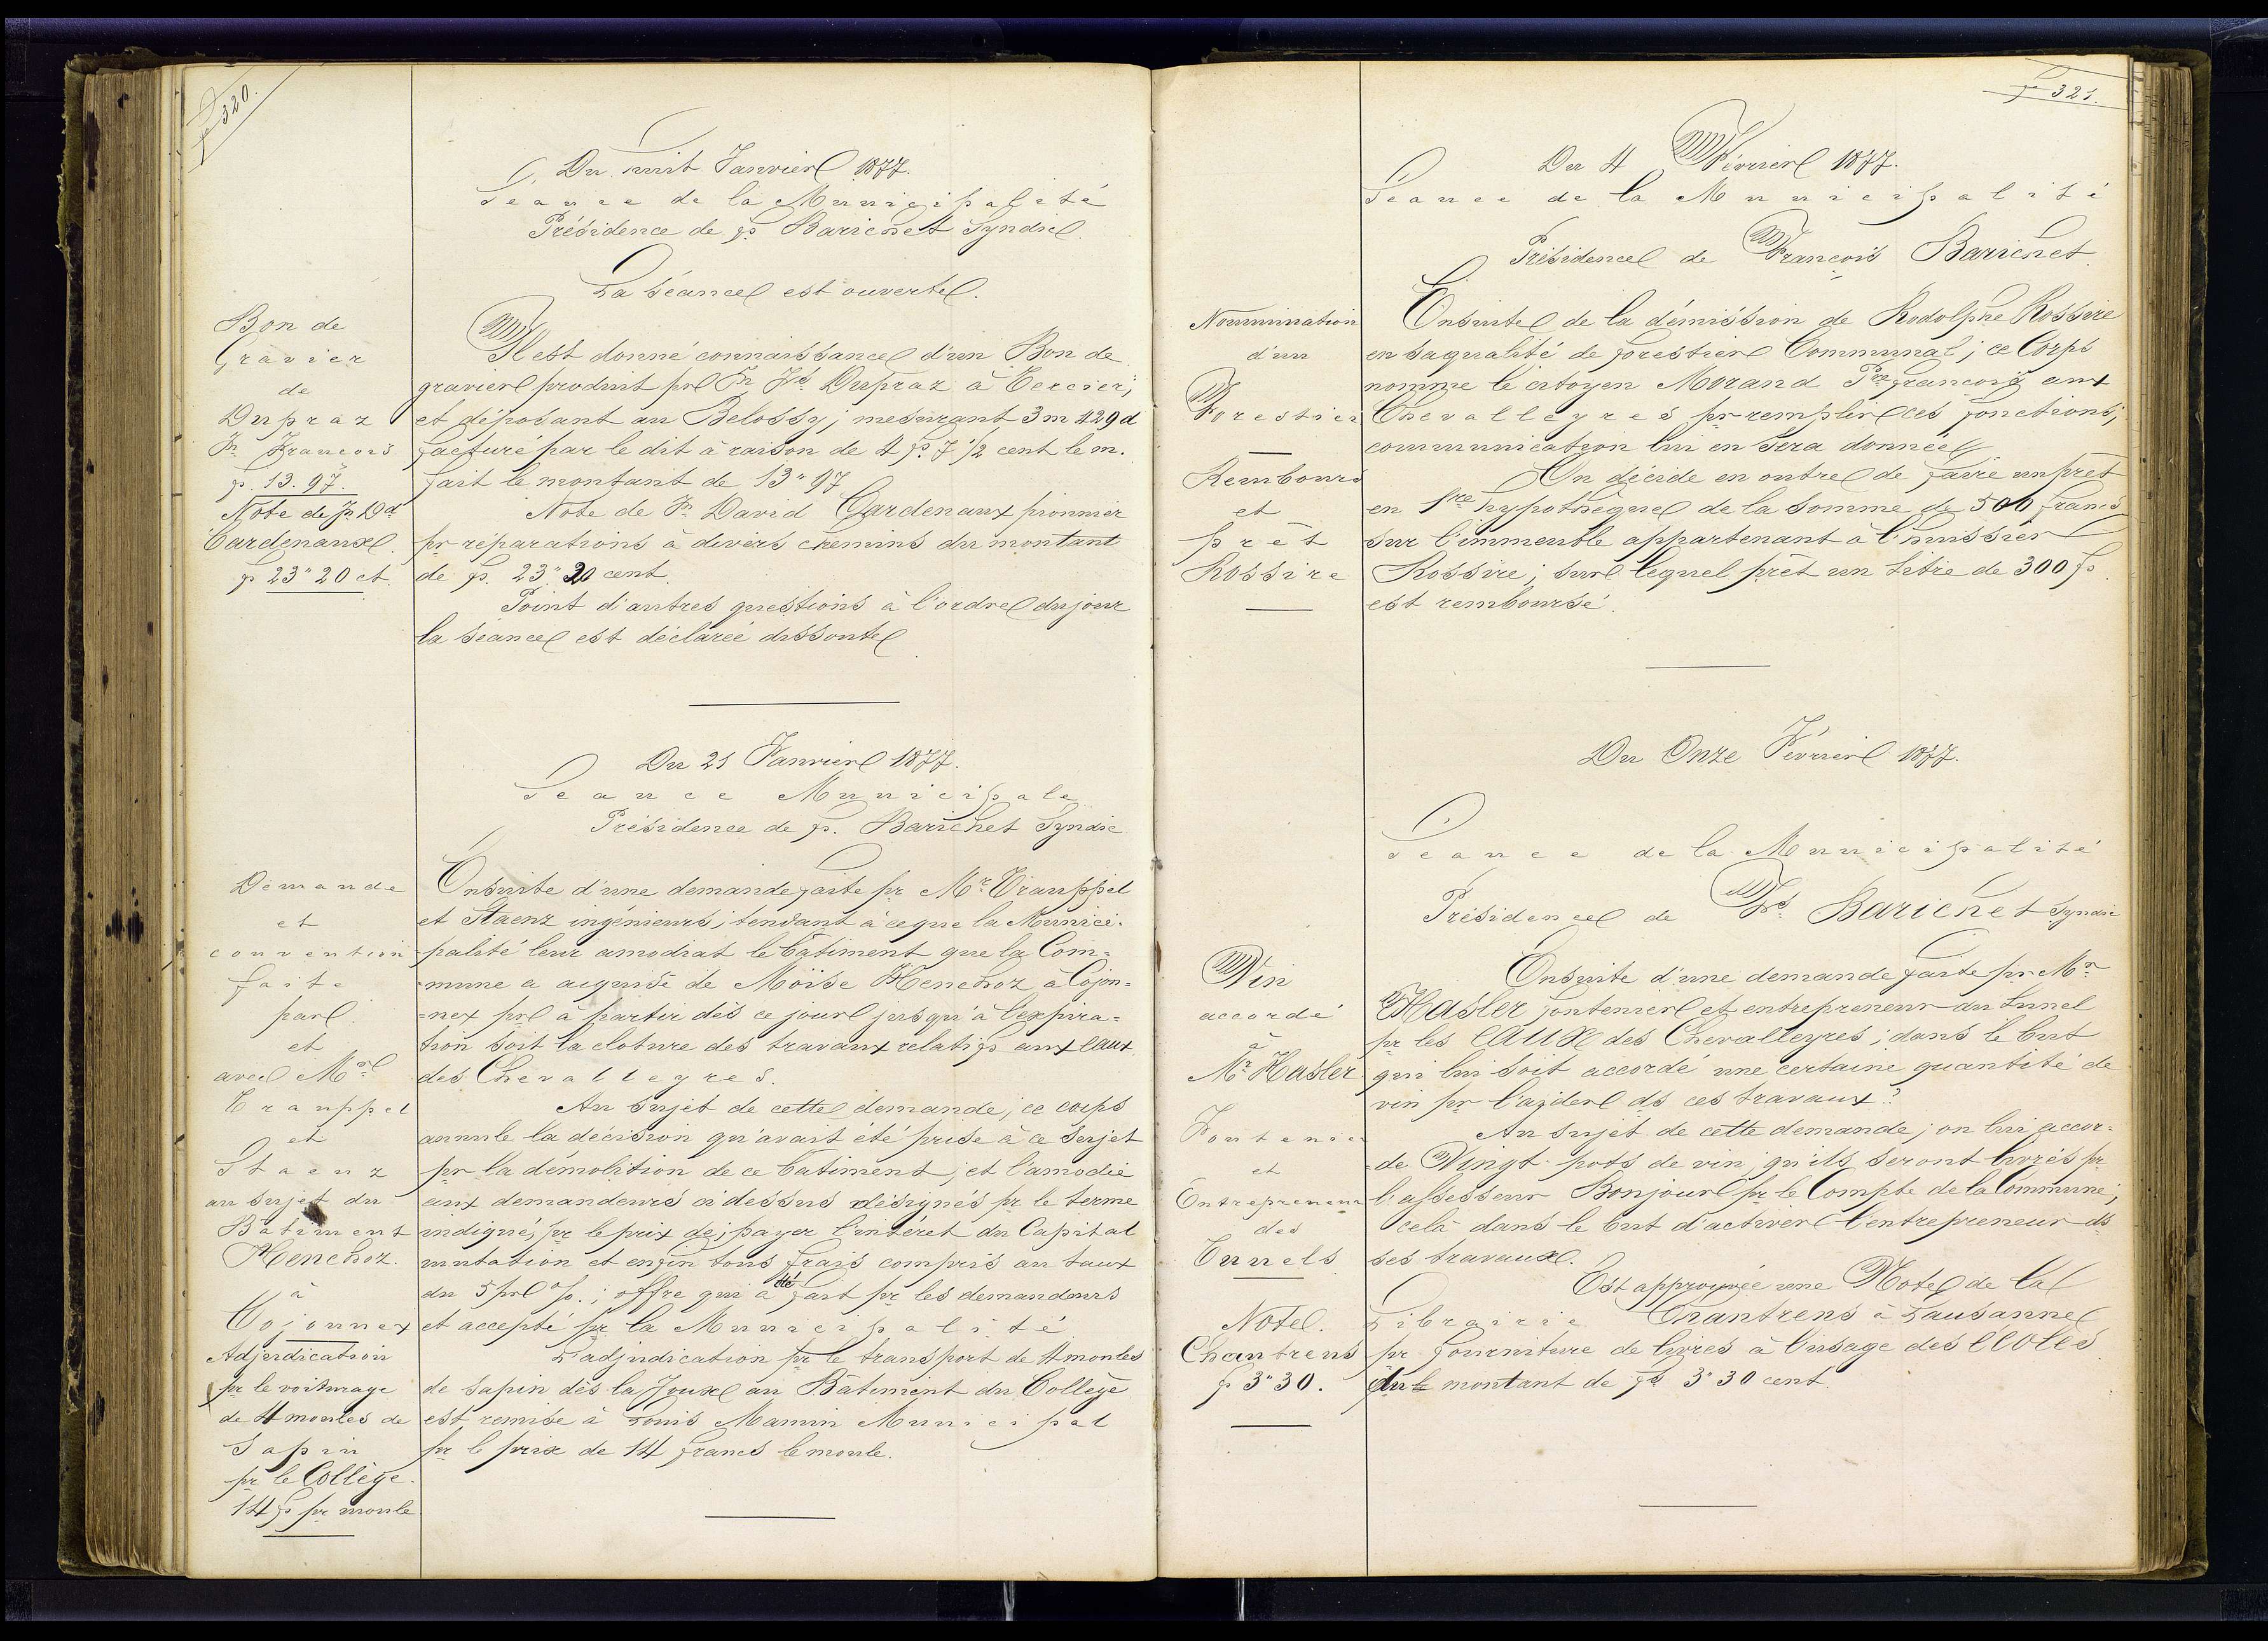 fo 320.
Du huit Janvier 1877.
Séance de la Municipalité
Présidence de fs Barichet Syndic
La séance est ouverte.
Bon de
Gravier
de
Dupraz
Jn François
fs. 13. 97.
Il est donné connaissance d'un Bon de
gravier produit pr Jn Fs Dupraz à Tercier;
et déposant au Belossy; mesurant 3m 429d
facturé par le dit à raison de 4 fs. 7 1/2 cent le m.
fait le montant de 13" 97
Note de Jn Dd
Cardenaux.
fs 23" 20 ct.
Note de Jn David Cardenaux pionnier
pr réparations à divers chemins du montant
de fs. 23" 20 cent.
Point d'autres questions à l'ordre du jour
la séance est déclarée dissoute
Du 21 Janvier 1877.
Séance Municipale
Présidence de fs. Barichet Syndic
Demande
et
convention
faite
par
et
avec Mr
Trauppel
et
Staenz
au sujet du
Bâtiment
Henchoz.
à
Cojonnex
Ensuite d'une demande faite pr Mr Trauppel
et Staenz ingénieurs; tendant à ce que la Munici-
palité leur amodiat le bâtiment que la Com=
=mune a aquise de Moïse Henchoz à Cojon=
=nex pr à partir dès ce jour jusqu'à l'expira=
tion soit la cloture des travaux relatifs aux eaux
des Chevalleyres.
Au sujet de cette demande; ce corps
annule la décision qu'avait été prise à ce sujet
pr la démolition de ce bâtiment; et l'amodie
aux demandeurs ci dessus désignés pr le terme
indiqué, pr le prix de; payer l'intéret du Capital
mutation et enfin tous frais compris au taux
du 5 pr %.; offre qui a été fait pr les demandeurs
et accepté pr la Municipalité
Adjudication
pr le voiturage
de 4 moules de
Sapin
pr le Collège.
14 fs pr moule
L'adjudication pr le transport de 4 moules
de sapin dès la Joux au Bâtiment du Collège
est remise à Louis Mamin Municipal
pr le prix de 14 francs le moule.
fo 321.
Du 4 Février 1877.
Séance de la Municipalité
Présidence de François Barichet
Nommination
d'un
Forestier
Ensuite de la démission de Rodolphe Rossire
en sa qualité de forestier Communal; ce Corps
nomme le citoyen Morand Jn François aux
Chevalleyres pr remplir ces fonctions;
communication lui en sera donnée
Rembours
et
prêt
Rossire
On décide en outre de faire un prêt
en 1re hypothèque de la somme de 500 francs
sur l'immeuble appartenant à l'huissier
Rossire; sur lequel prêt un titre de 300 fs
est remboursé.
Du Onze Février 1877.
Séance de la Municipalité
Présidence de Fs Barichet Syndic
Vin
accordé
à
Mr Hasler
Fontenier
et
Entrepreneur
des
Tunels
Ensuite d'une demande faite pr Mr
Hasler fontenier et entrepreneur du tunel
pr les eaux des Chevalleyres; dans le but
qui lui soit accordé une certaine quantité de
vin pr l'aider ds ces travaux?
Au sujet de cette demande; on lui accor=
=de Vingt pots de vin; qu'ils seront livrés pr
l'assesseur Bonjour pr le Compte de la Commune;
celà dans le but d'activer l'entrepreneur ds
ses travaux.
Note.
Chantrens
fs 3" 30.
Est approuvée une Note de la
Librairie Chantrens à Lausanne
pr fourniture de livres à l'usage des écoles
du montant de fs 3" 30 cent.